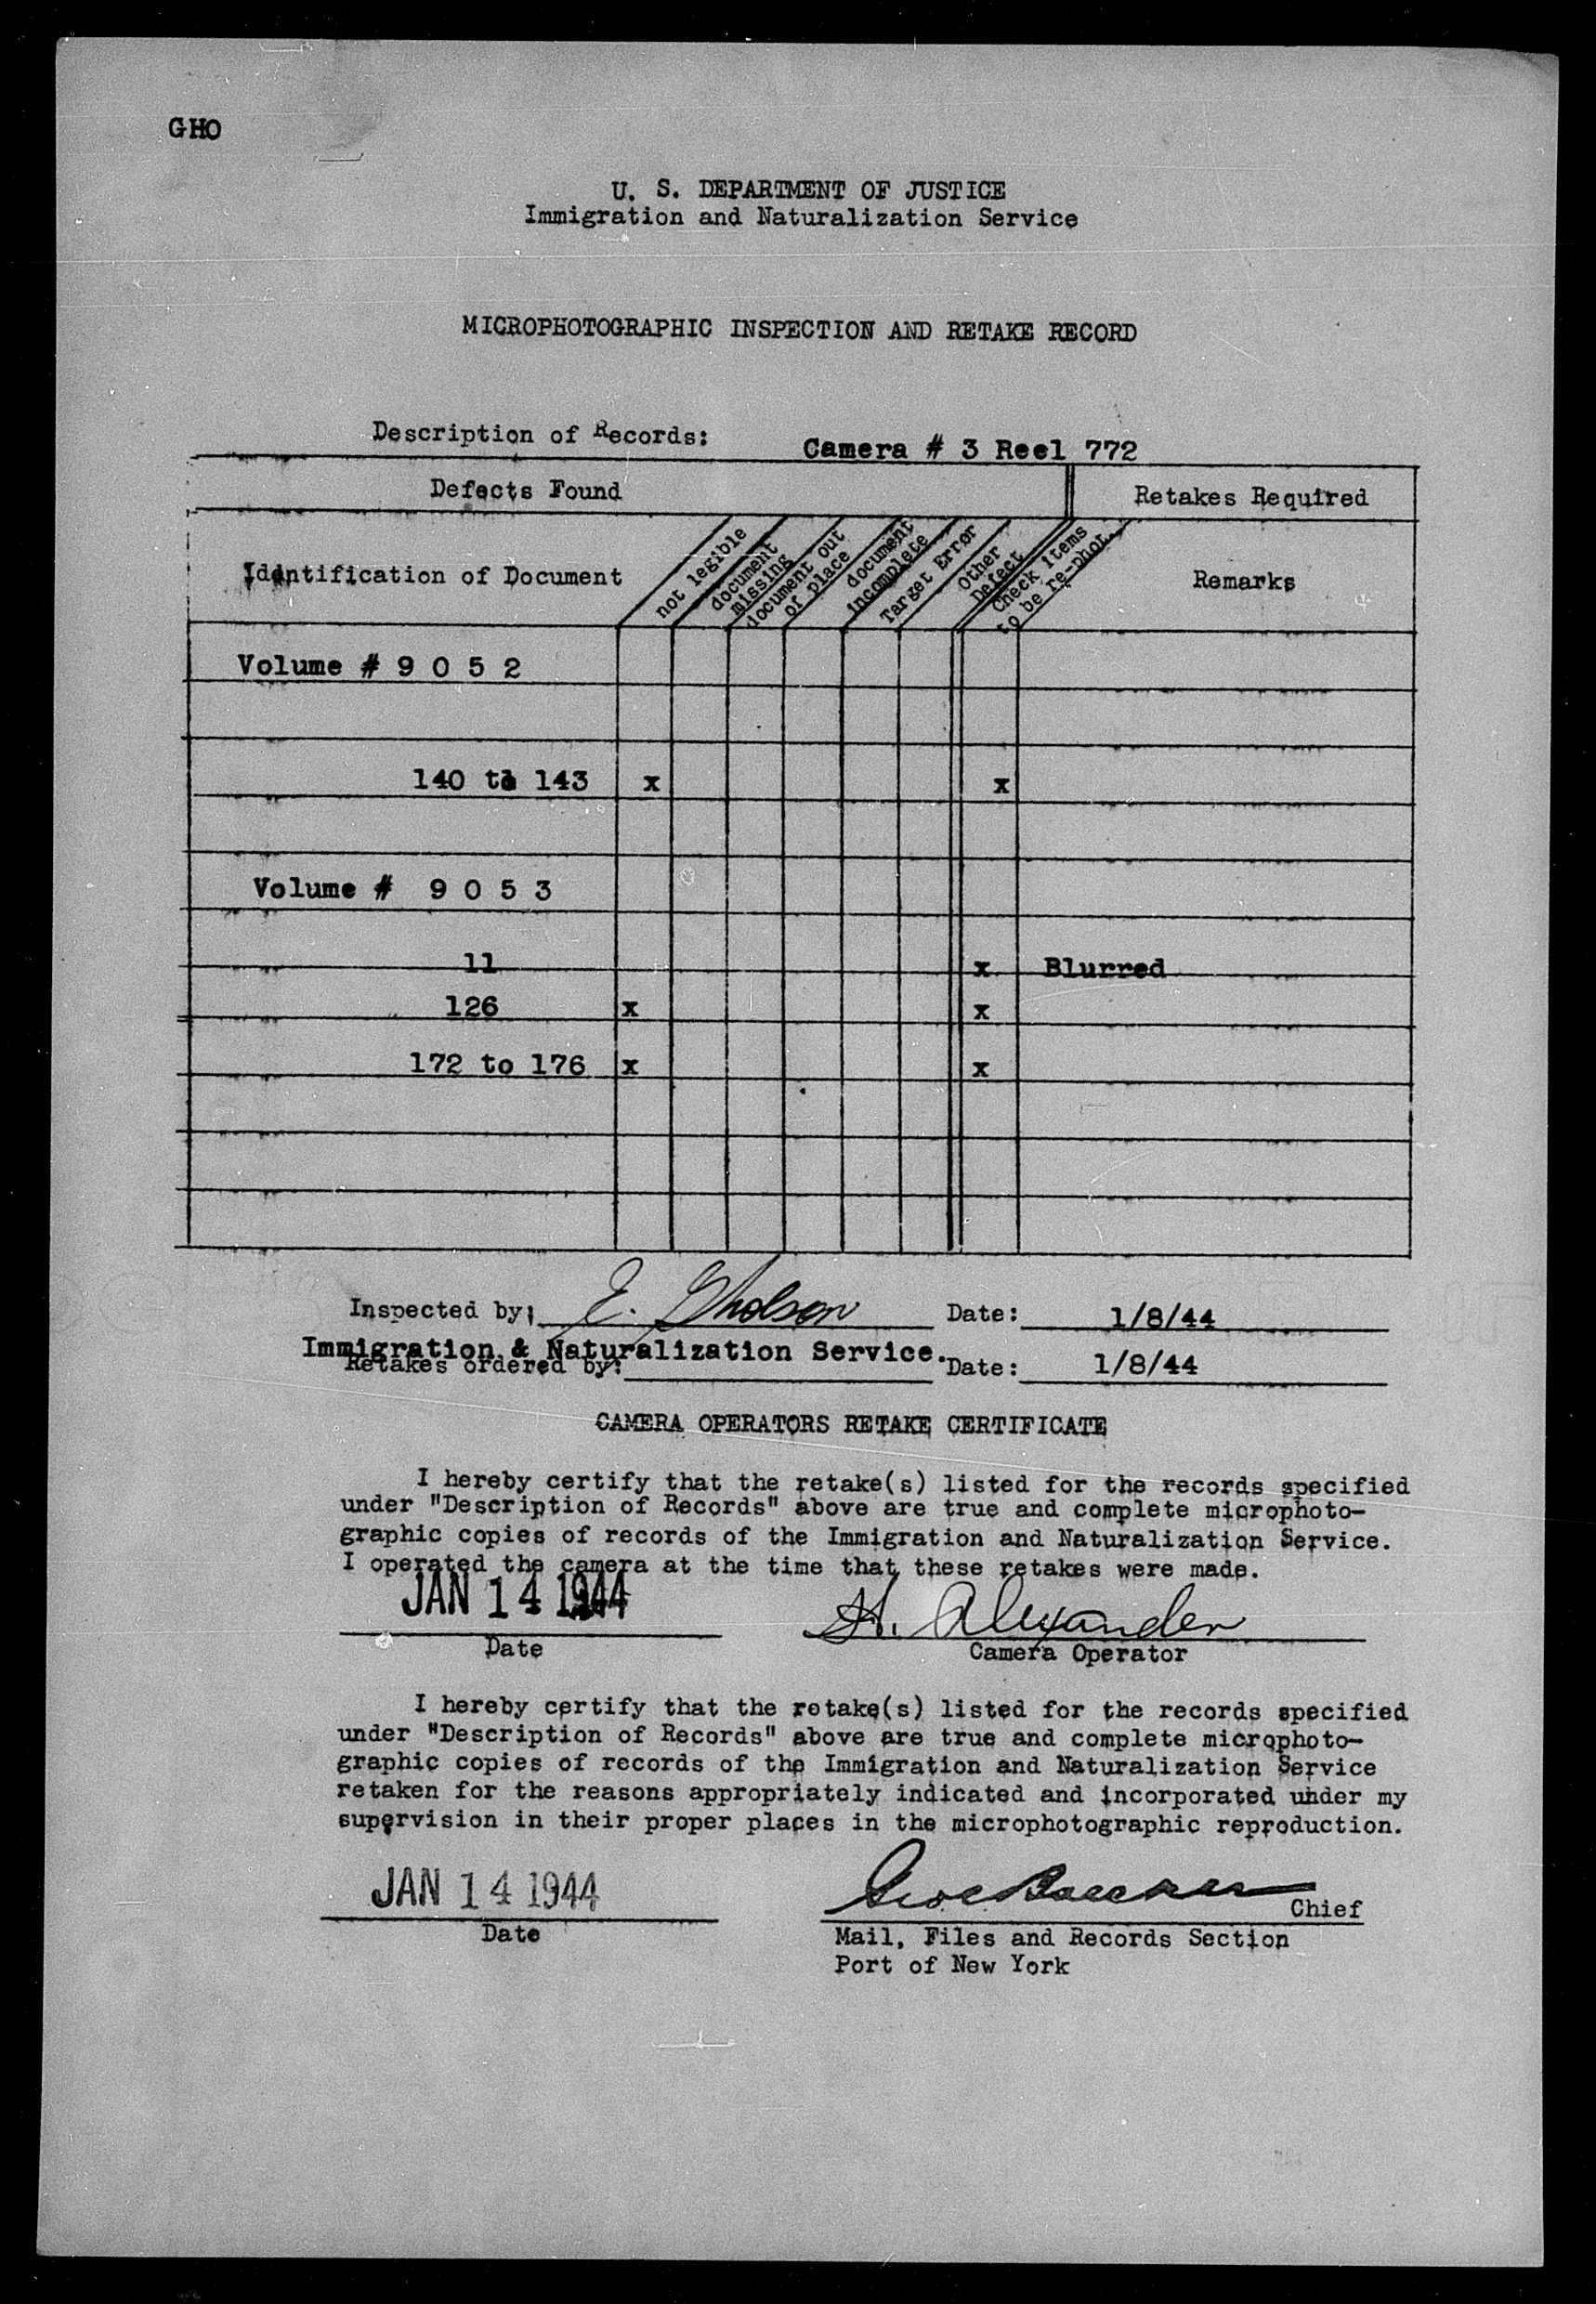 GHO
U. S. DEPARTMENT OF JUSTICE
Immigration and Naturalization Service
MICROPHOTOGRAPHIC INSPECTION AND RETAKE RECORD
Description of Records: Camera # 3 Reel 772
Defects Found Retakes Required
Identification of Document
not legible
document missing
document out of place
document incomplete
Target Error
Other Defect
Check Items to be re-phot.
Remarks
Volume # 9 0 5 2
140 to 143 x x
Volume # 9 0 5 3
11 x Blurred
126 x x
172 to 176 x x
Inspected by: E. Gholson Date: 1/8/44
Immigration & Naturalization Service.
Retakes ordered by: Date: 1/8/44
CAMERA OPERATORS RETAKE CERTIFICATE
I hereby certify that the retake(s) listed for the records specified
under "Description of Records" above are true and complete microphoto-
graphic copies of records of the Immigration and Naturalization Service.
I operated the camera at the time that these retakes were made.
JAN 14 1944 H. Alexander
Date Camera Operator
I hereby certify that the retake(s) listed for the records specified
under "Description of Records" above are true and complete microphoto-
graphic copies of records of the Immigration and Naturalization Service
retaken for the reasons appropriately indicated and incorporated under my
supervision in their proper places in the microphotographic reproduction.
JAN 14 1944 Chief
Date Mail, Files and Records Section
Port of New York